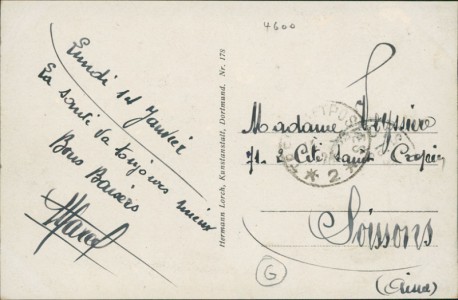 Lundi 14 Janvier
La santé va toujours mieux
Bons Baisers
Marcel
Hermann Lorch, Kunstanstalt, Dortmund. Nr. 178
4600
Madame
Cité Saint Crépin
* 2
Soissons
(Aisne)
G